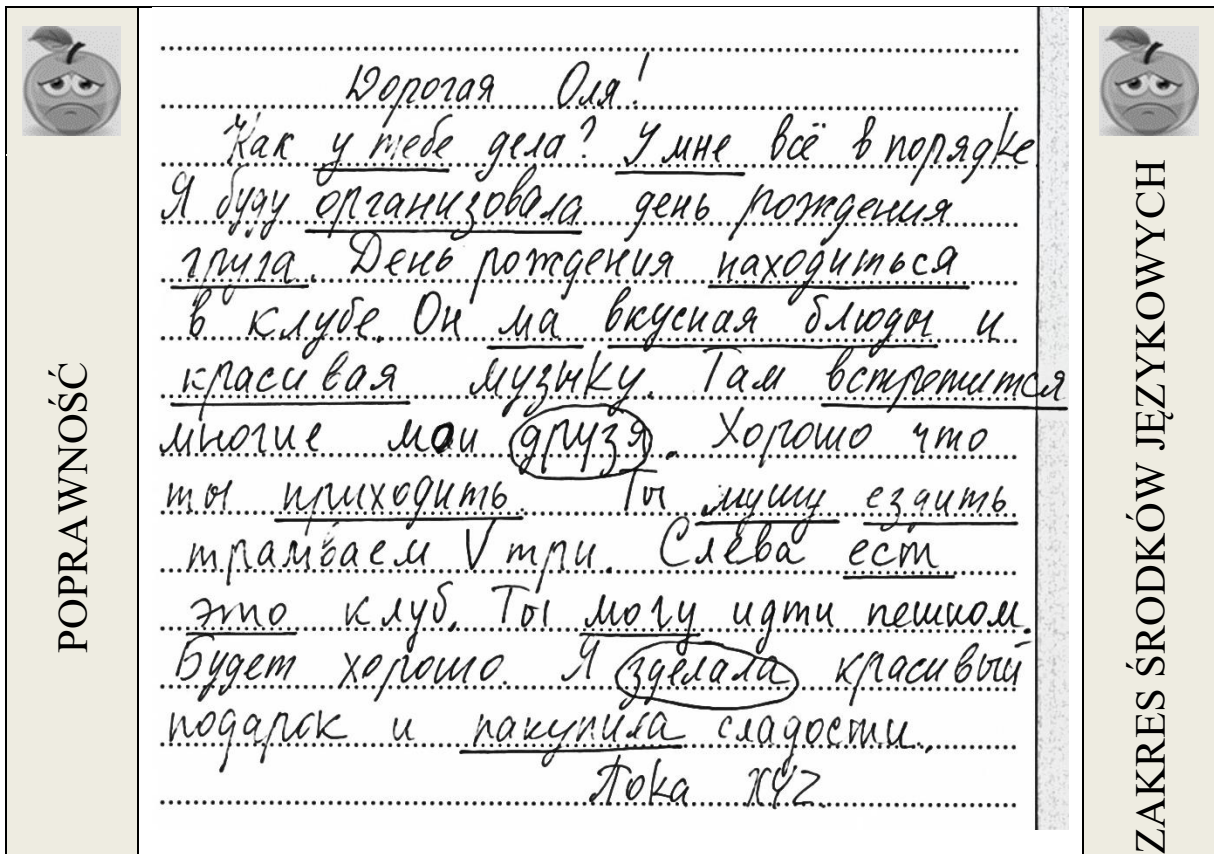 POPRAWNOŚĆ
Дорогая Оля!
Как у тебе дела? У мне всё в порядке
Я буду организовала день рождения
друга. День рождения находиться
в клубе. Он ма вкусная блюды и
красивая музыку. Там встретится
многие мои друзя. Хорошо что
ты приходить. Ты мушу ездить
трамваем V три. Слева ест
это клуб. Ты могу идти пешком.
Будет хорошо. Я зделала красивый
подарок и пакупила сладости.
Пока XYZ
ZAKRES ŚRODKÓW JĘZYKOWYCH